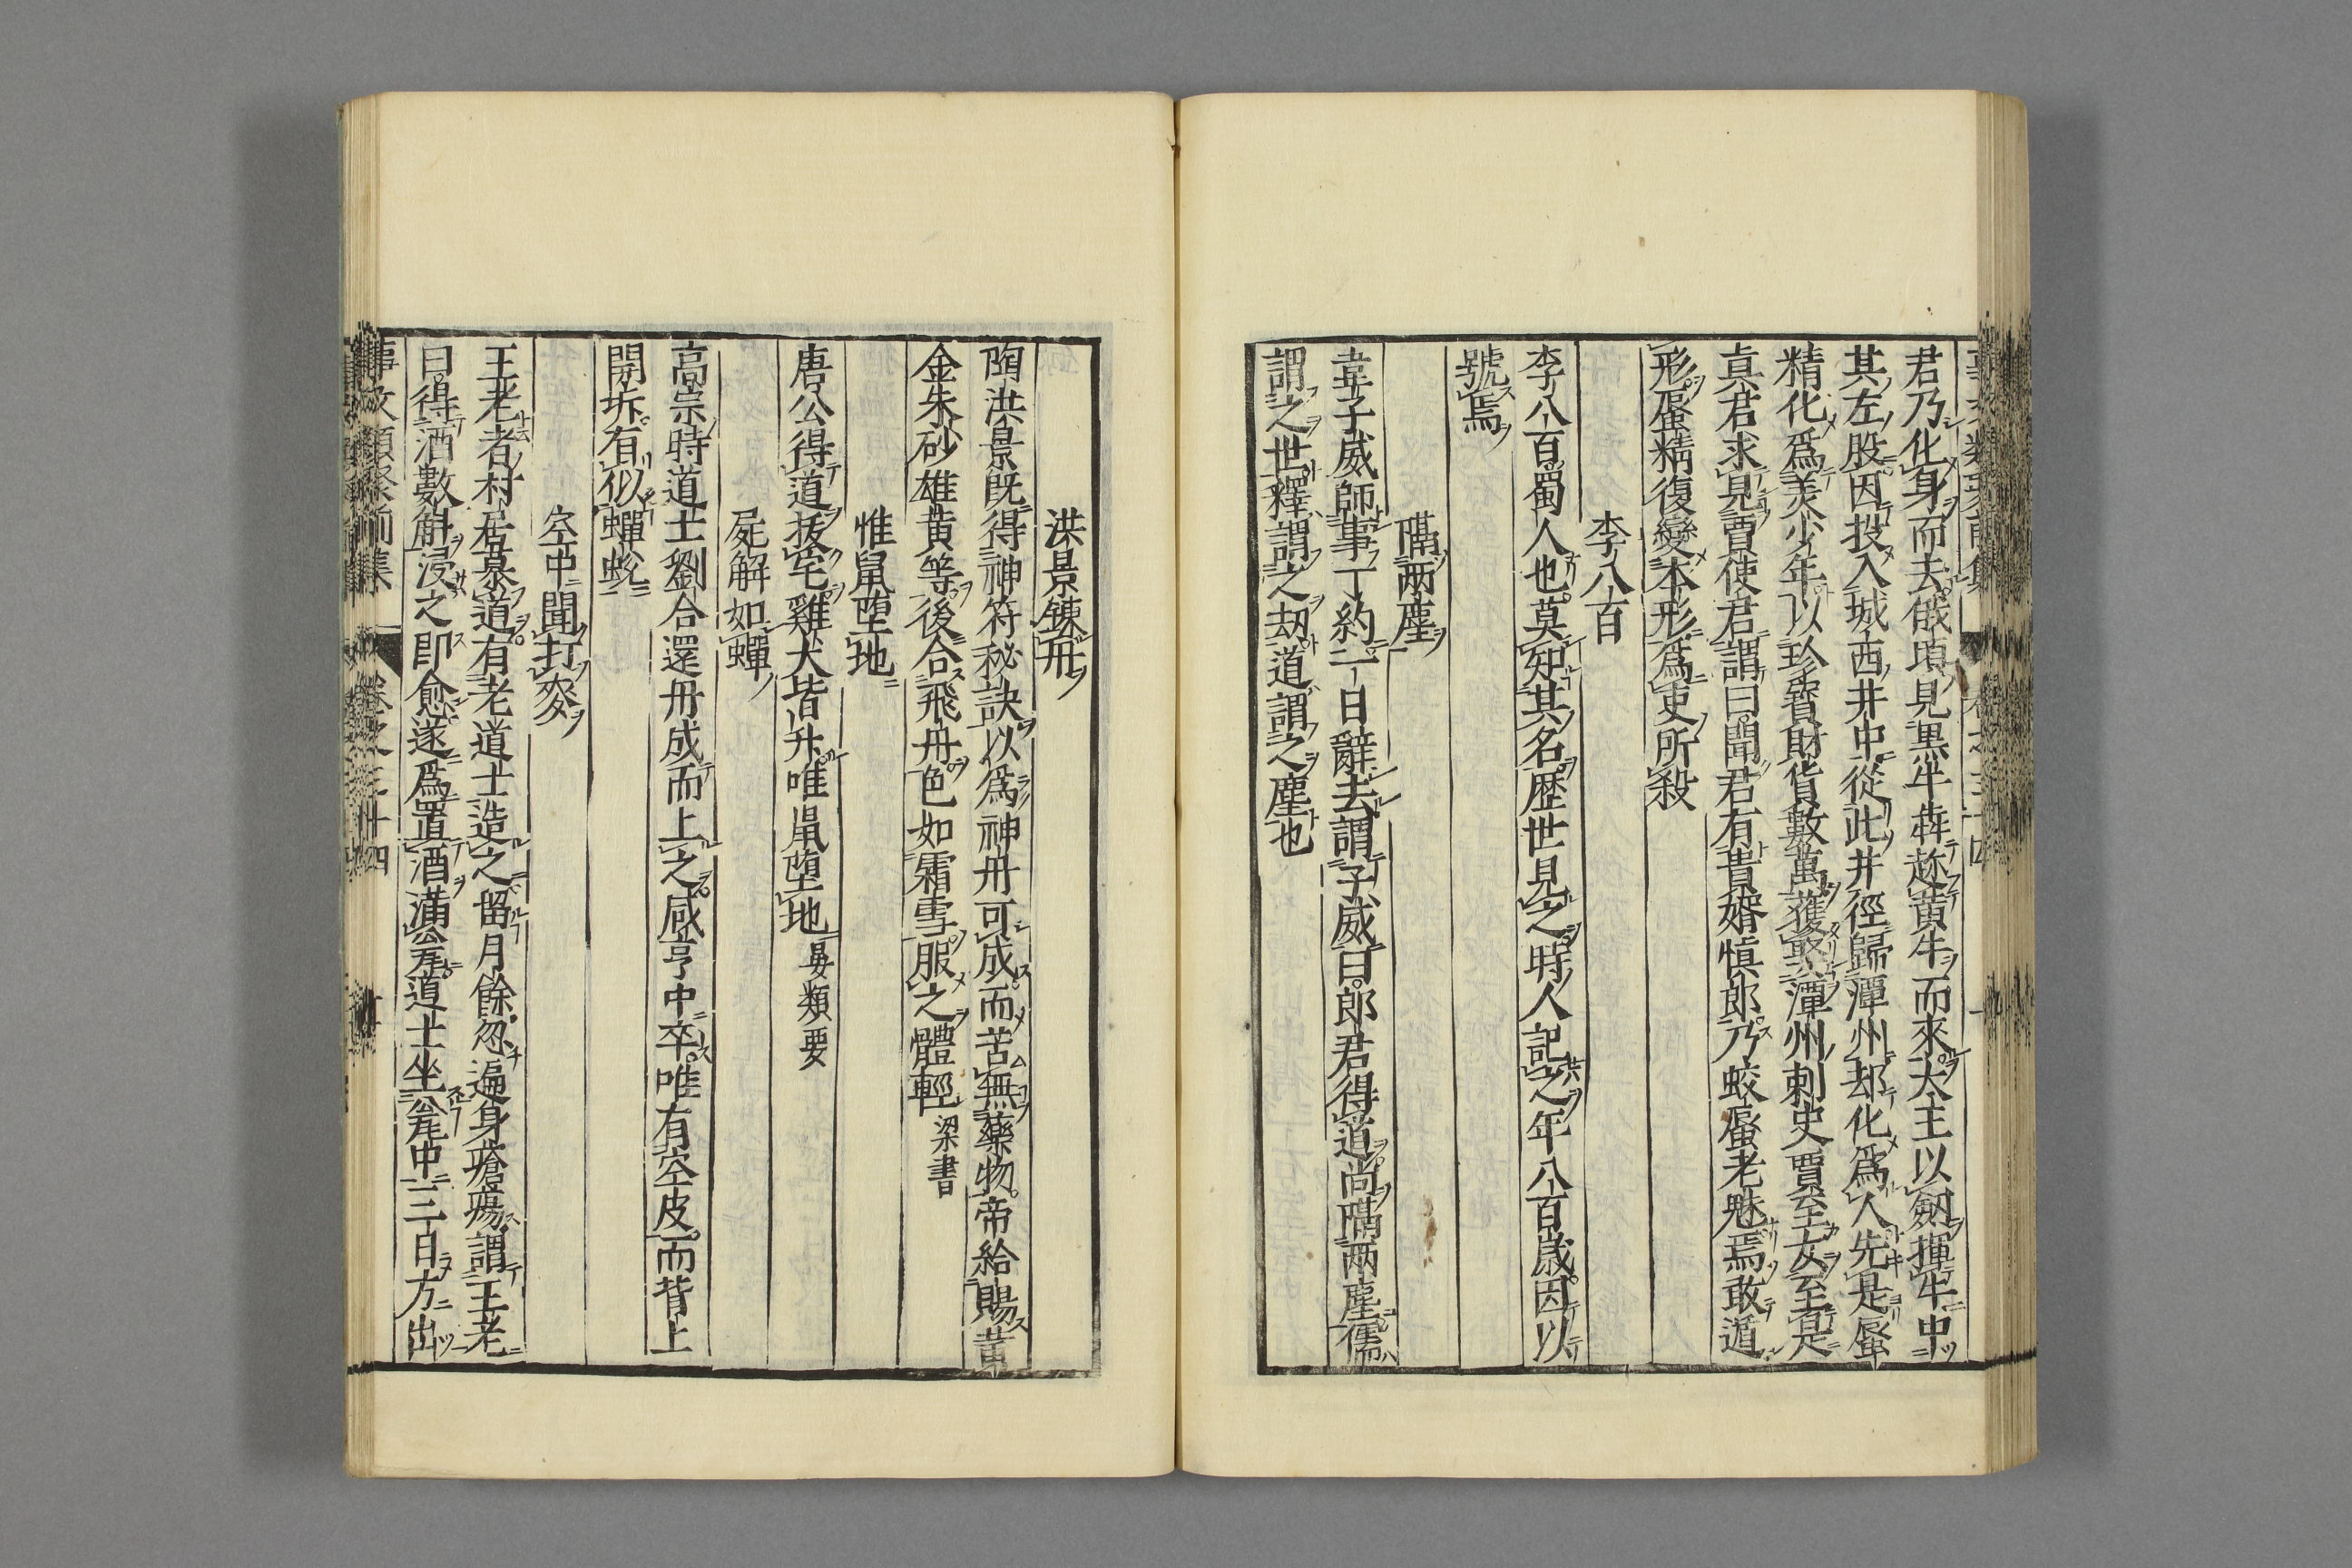 君乃化身而去。俄頃見黒牛犇趂黄牛而來。太主以劔揮牛中
其左股。因投入城西井中。從此井徑歸潭州。却化爲人。先是蜃
精化爲美少年。以珍寳財貨數萬獲娶潭州刺史賈至女。至是
眞君求見賈使君。謂曰。聞君有貴婿愼郎。乃蛟蜃老魅焉敢遁
形。蜃精復變本形。爲吏所殺
李八百
李八百蜀人也。莫知其名。歴世見之。時人記之年八百歳。因以
號焉
隔兩塵
韋子威師事丁約。一日辭去。謂子威曰。郎君得道。尚隔兩塵。儒
謂之世釋謂之劫道謂之塵也
洪景錬丹
陶洪景既得神符秘訣。以爲神丹可成。而苦無藥物。帝給賜黄
金朱砂雄黄等。後合飛丹。色如霜雪。服之體輕 梁書
惟鼠墮地
唐公得道抜宅。雞犬皆升。唯鼠墮地 晏類要
屍解如蟬
高宗時道士劉合還丹成而上之。咸亨中卒。唯有空皮。而背上
開坼。有似蟬蛻
空中聞打麥
王老者。村居慕道。有老道士造之。留月餘。忽遍身瘡瘍。謂王老
曰。得酒數斛浸之即愈。遂爲置酒滿瓮。道士坐瓮中三日方出
事文類聚前集 卷之三十四